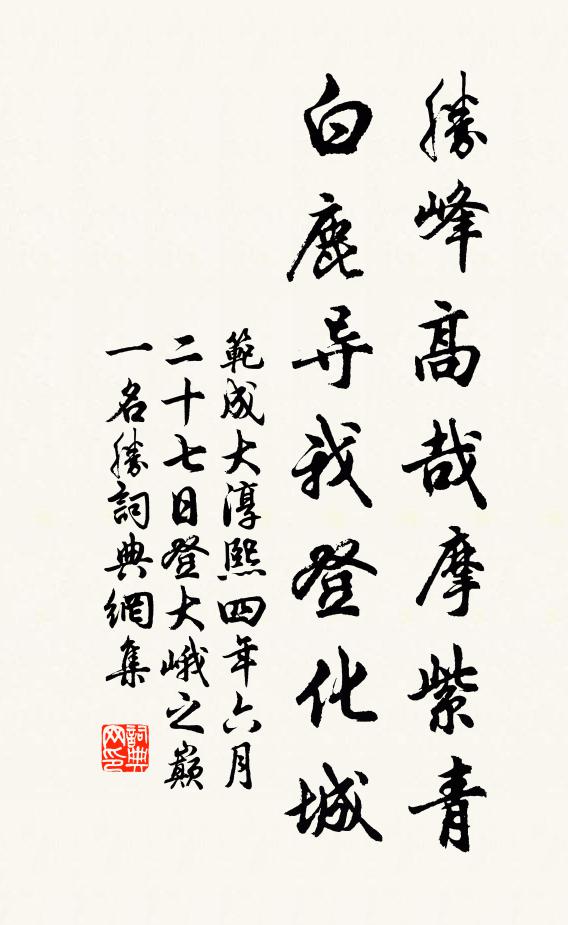 勝峰高哉摩紫青
白鹿导我登化城
範成大淳熙四年六月
二十七日登大峨之巔
一名勝詞典網集
詞典网印